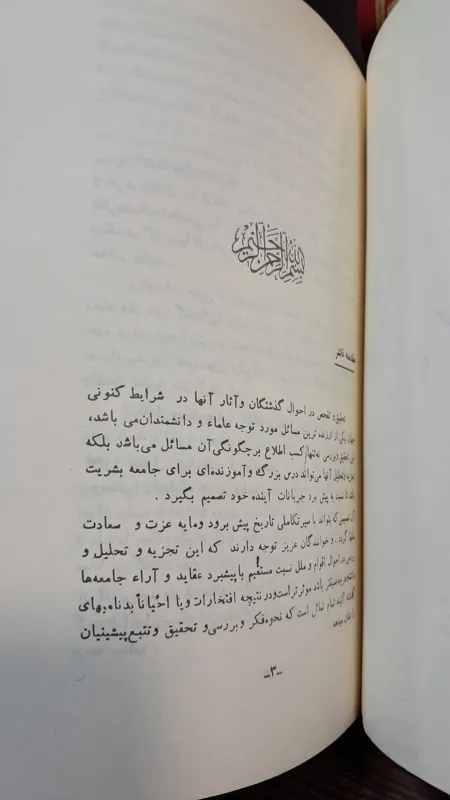 بسم الله الرحمن الرحیم
مقدمه ناشر
تحقیق و تفحص در احوال گذشتگان و آثار آنها در شرایط کنونی
جهان یکی از ارزنده ترین مسائل مورد توجه علماء و دانشمندان می باشد،
این تحقیق و بررسی نه تنها کسب اطلاع بر چگونگی آن مسائل می‌باشد بلکه
تجزیه و تحلیل آنها می‌تواند درس بزرگ و آموزنده‌ای برای جامعه بشریت
باشد تا نسبت به پیش برد جریانات آینده خود تصمیم بگیرد .
آن تصمیمی که بتواند با سیر تکاملی تاریخ پیش برود و مایه عزت و سعادت
گردد . و خوانندگان عزیز توجه دارند که این تجزیه و تحلیل و
بررسی در احوال اقوام و ملل نسبت مستقیم با پیشبرد عقاید و آراء جامعه‌ها
باشد موثرتر است و در نتیجه افتخارات و یا احیاناً بدنامیهای
گذشته آئینه تمام نمائی است که نحوه فکر و بررسی و تحقیق و تتبع پیشینیان
را نشان میدهد .
-۳-